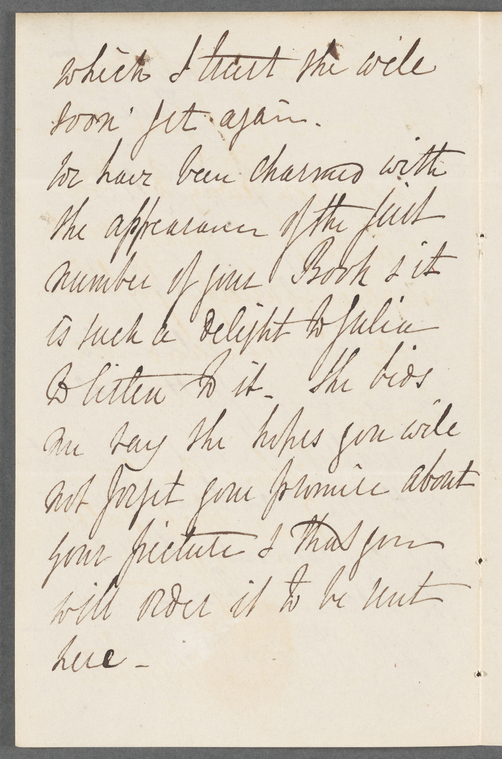 which I trust she will
soon get again.
We have been charmed with
the appearance of the first
number of your Book & it
is such a delight to Julia
to listen to it_ She bids
me say she hopes you will
not forget your promise about
your picture & that you
will order it to be sent
here_